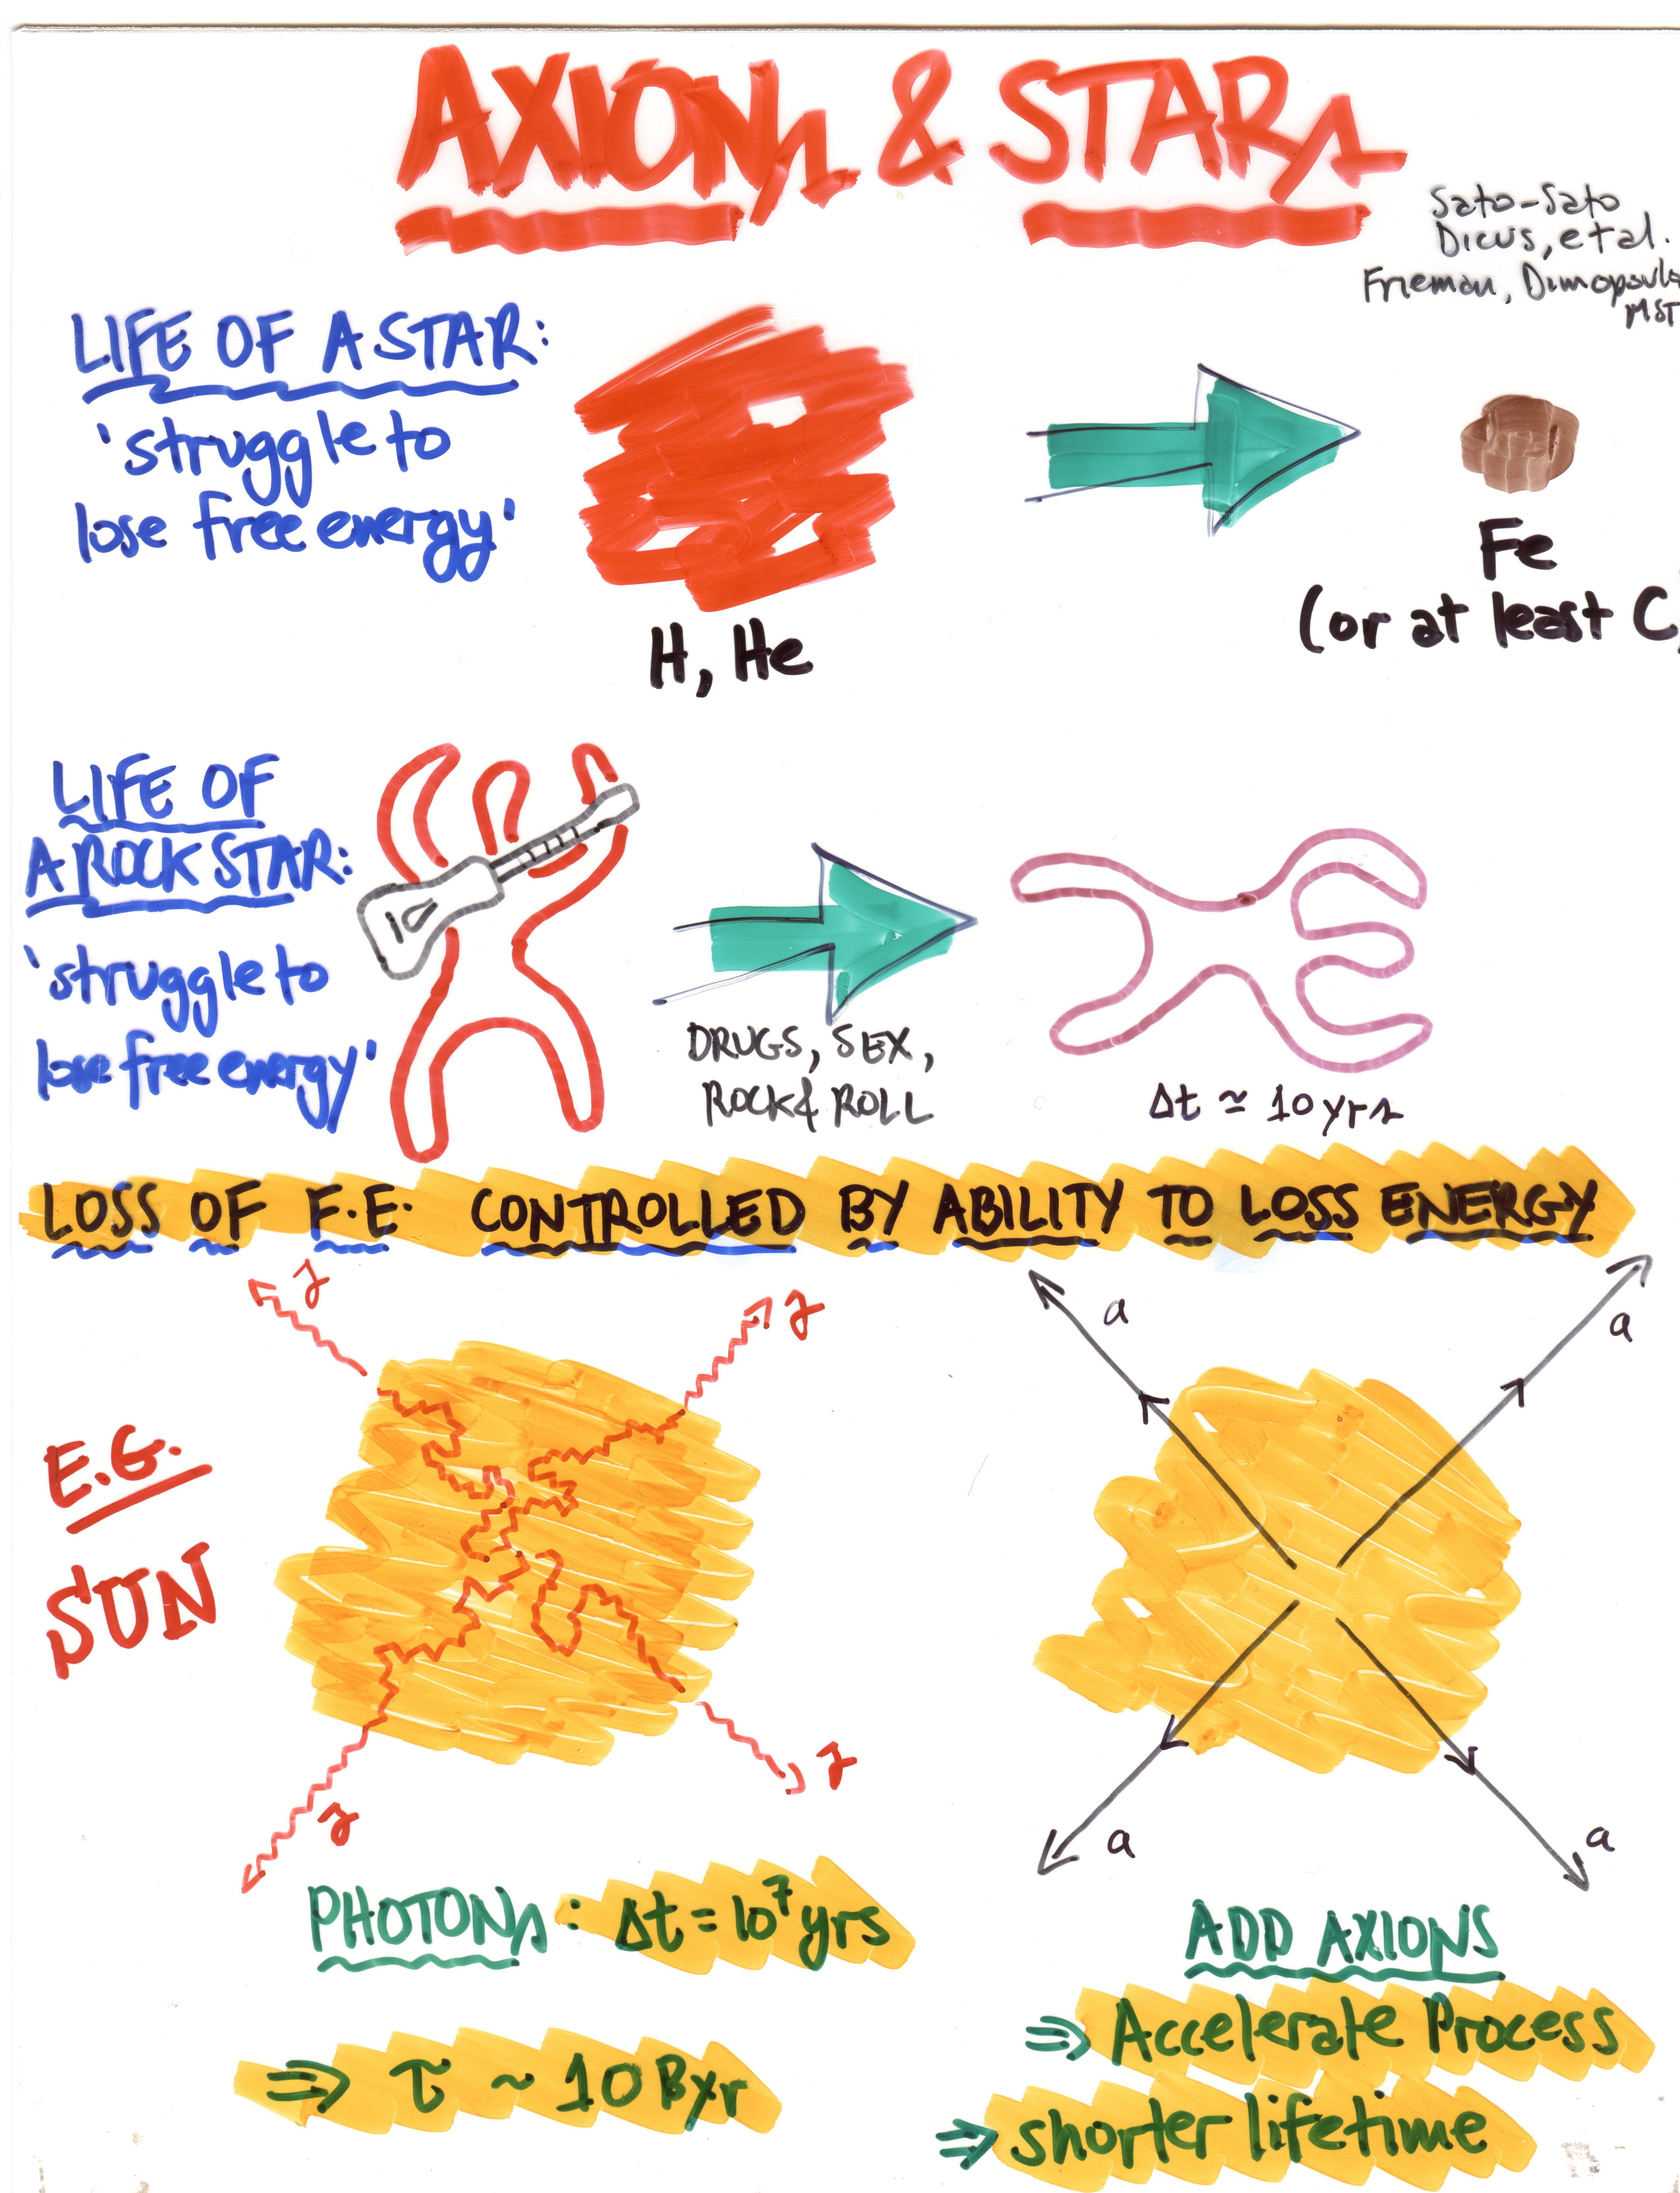 AXIONs & STARs
Sato-Sato
Dicus, et al.
Frieman, Dimopoulos
MST
LIFE OF A STAR:
'struggle to
lose free energy'
H, He
Fe
(or at least C)
LIFE OF
A ROCK STAR:
'struggle to
lose free energy'
DRUGS, SEX,
ROCK & ROLL
Δt ≃ 10 yrs
LOSS OF F.E. CONTROLLED BY ABILITY TO LOSS ENERGY
γ
γ
a
a
E.G.
SUN
γ
γ
a
a
PHOTONs: Δt = 10⁷ yrs
⇒ τ ~ 10 Byr
ADD AXIONS
⇒ Accelerate Process
⇒ shorter lifetime